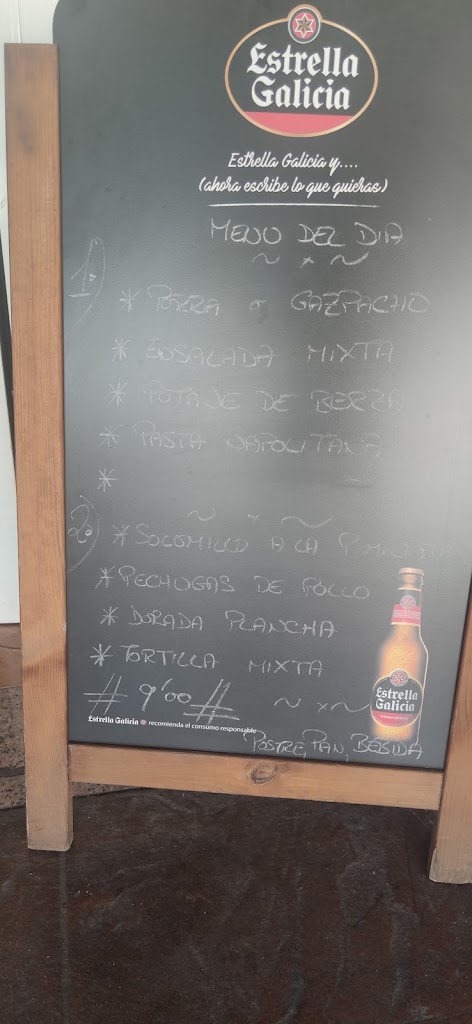 Estrella
Galicia
Estrella Galicia y....
(ahora escribe lo que quieras)
MENU DEL DIA
~ * ~
1º)
* PORRA o GAZPACHO
* ENSALADA MIXTA
* POTAJE DE BERZA
* PASTA NAPOLITANA
*
~ * ~
2º)
* SOLOMILLO A LA PIMIENTA
* PECHUGAS DE POLLO
* DORADA PLANCHA
* TORTILLA MIXTA
# 9'00 # ~ * ~
Estrella Galicia recomienda el consumo responsable
POSTRE, PAN, BEBIDA
Estrella
Galicia